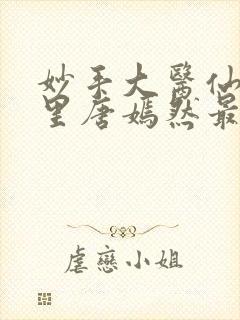 妙手大醫仙
里唐嫣然最
虐戀小姐